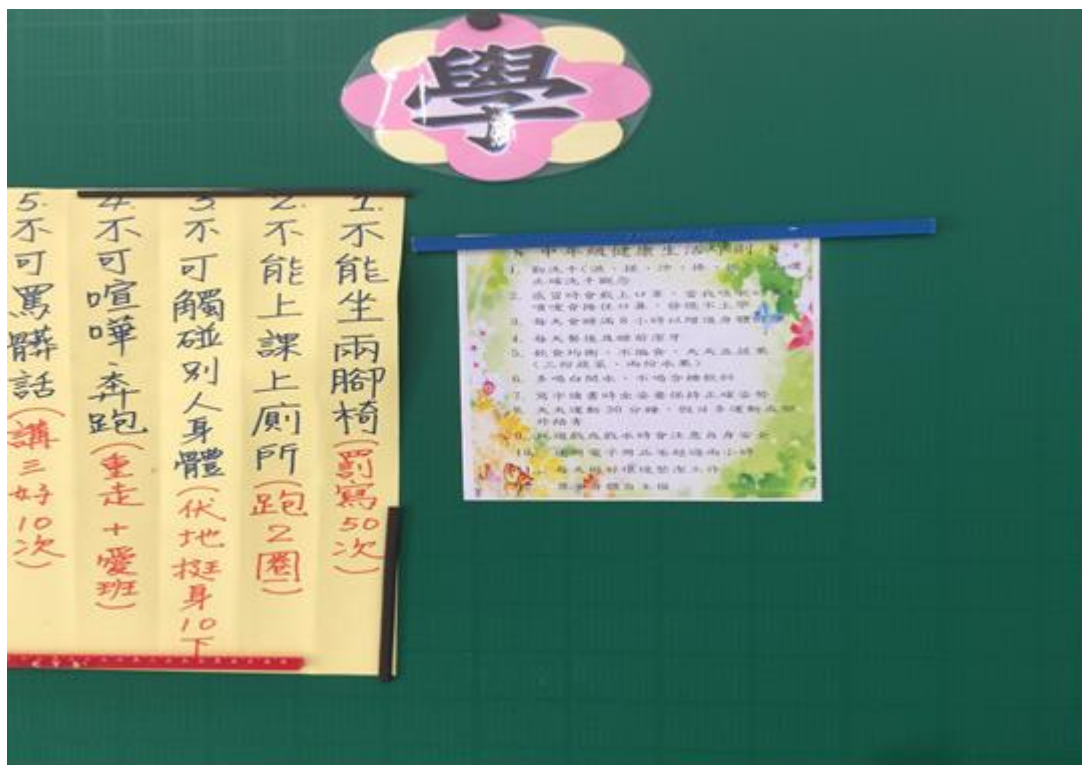 學
1.不能坐兩腳椅(罰寫50次)
2.不能上課上廁所(跑2圈)
3.不可觸碰別人身體(伏地挺身10下
4.不可喧嘩、奔跑(重走+愛班)
5.不可罵髒話(講三好10次)
中年級健康生活守則
1. 勤洗手(濕、搓、沖、捧、
正確洗手觀念
2. 感冒時會戴上口罩,當我咳嗽
噴嚏會摀住口鼻,發燒不上學
3. 每天會睡滿8小時以增進身體
4. 每天餐後及睡前潔牙
5. 飲食均衡、不偏食、天天五蔬果
(三份蔬菜、兩份水果)
6. 多喝白開水、不喝含糖飲料
7. 寫字讀書時坐姿要保持正確姿勢
8. 天天運動30分鐘,假日多運動
9. 玩遊戲或戲水時會注意自身安全
10. 使用電子用品不超過兩小時
每天做好環境整潔工作